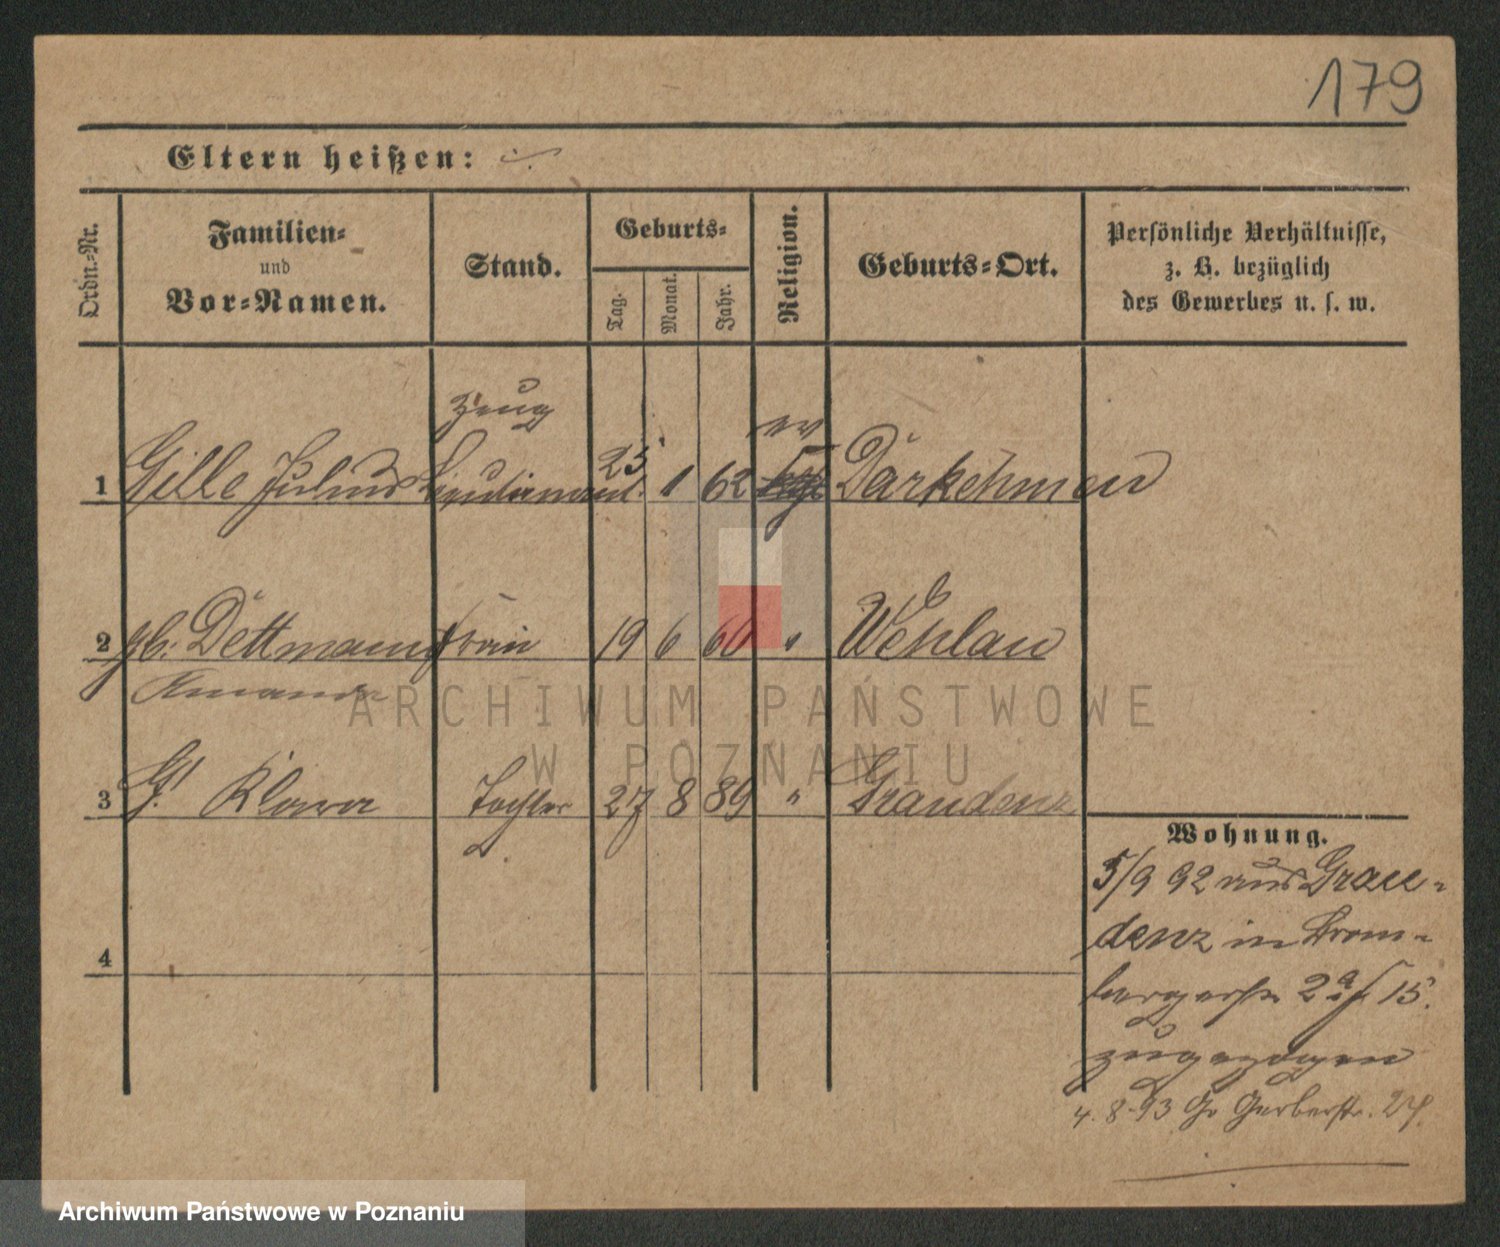 179
Eltern heißen: ./.
Ordn.-Nr.
Familien-
und
Vor-Namen.
Stand.
Geburts-
Tag.
Monat.
Jahr.
Religion.
Geburts-Ort.
Persönliche Verhältnisse,
z. B. bezüglich
des Gewerbes u. s. w.
Zeug
1 Gille Julius Lieutenant 25 1 62 ev Darkehmen
2 gb. Dettmann Frau 19 6 60 " Wehlau
Amanda
3 G. Klara Tochter 27 8 89 " Graudenz
4
Wohnung.
5/9 92 aus Grau-
denz in Brom-
bergerstr 2a 15.
zugezogen
4. 8. 93 Gr Gerberstr. 27.
ARCHIWUM PAŃSTWOWE
W POZNANIU
Archiwum Państwowe w Poznaniu